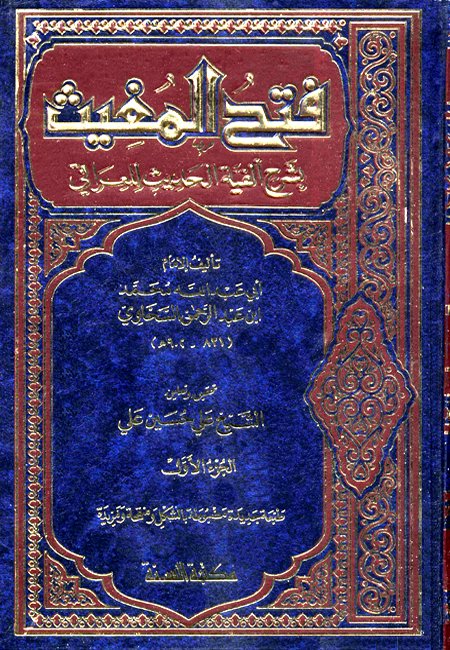 فتح المغيث
بشرح ألفية الحديث للعراقي
تأليف الإمام
أبي عبد الله محمد
ابن عبد الرحمن السخاوي
(٨٣١ - ٩٠٢ هـ)
تحقيق وتعليق
الشيخ علي حسين علي
الجزء الأول
طبعة جديدة مضبوطة بالشكل ومنقحة ومزيدة
مكتبة السنة